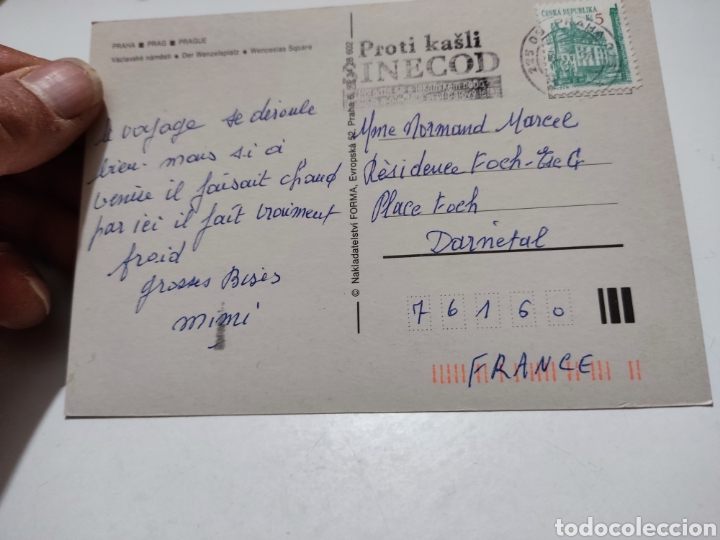 PRAHA ■ PRAG ■ PRAGUE
Václavské náměstí ● Der Wenzelsplatz ● Wenceslas Square
le voyage se déroule
bien. mais si à
venise il faisait chaud
par ici il fait vraiment
froid
grosses Bises
mimi
© Nakladatelství FORMA, Evropská 52, Praha 6
Proti kašli
INECOD
ČESKÁ REPUBLIKA
5
PRAHA
Mme Normand Marcel
Résidence Foch-Esc G
Place Foch
Darnetal
76160
FRANCE
todocoleccion